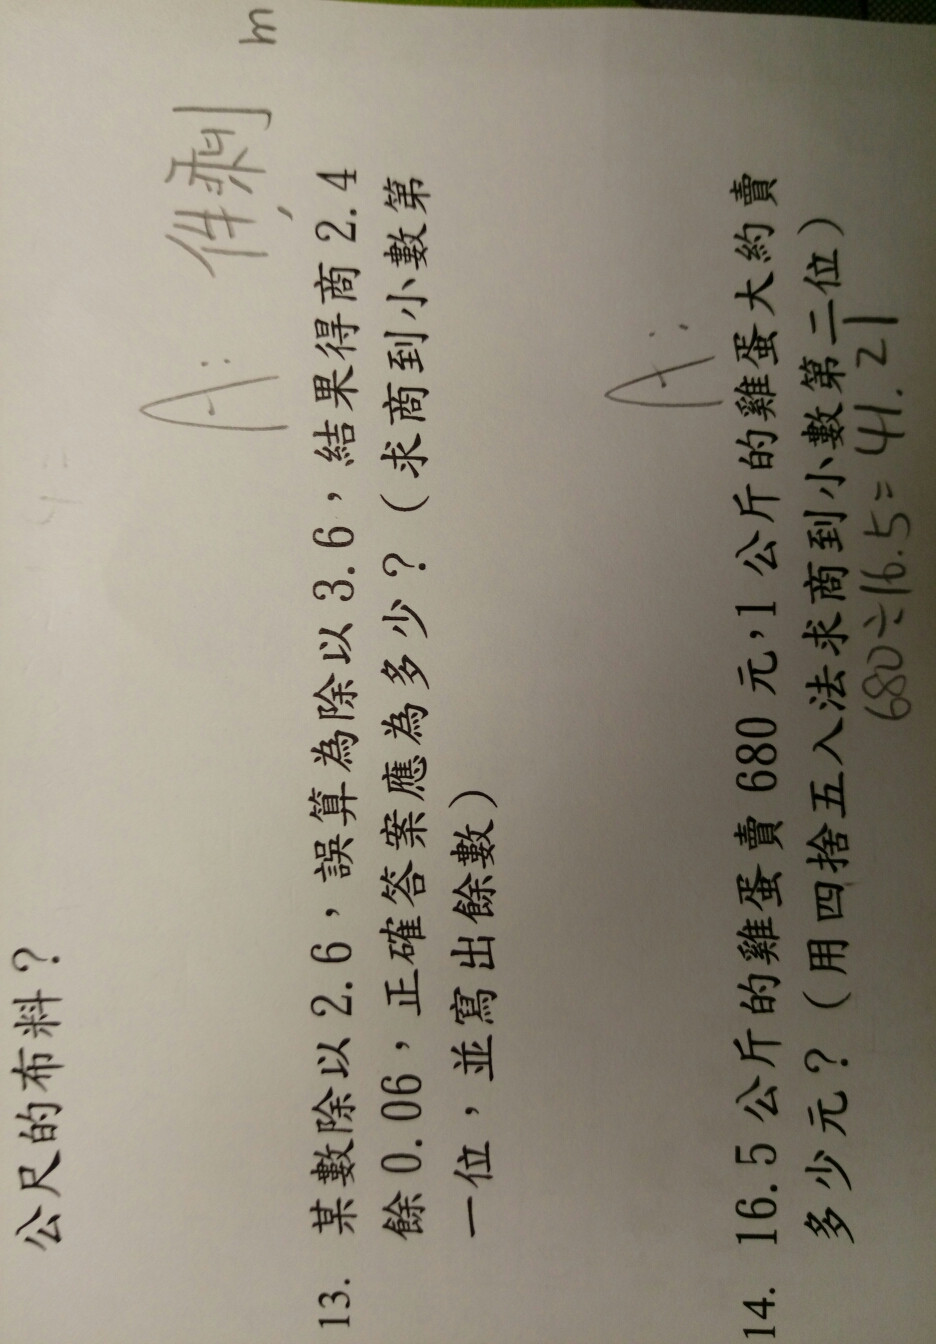 公尺的布料？
A： 件剩 m
13. 某數除以 2.6，誤算為除以 3.6，結果得商 2.4
餘 0.06，正確答案應為多少？（求商到小數第
一位，並寫出餘數）
A：
14. 16.5 公斤的雞蛋賣 680 元，1 公斤的雞蛋大約賣
多少元？（用四捨五入法求商到小數第二位）
680÷16.5=41.21